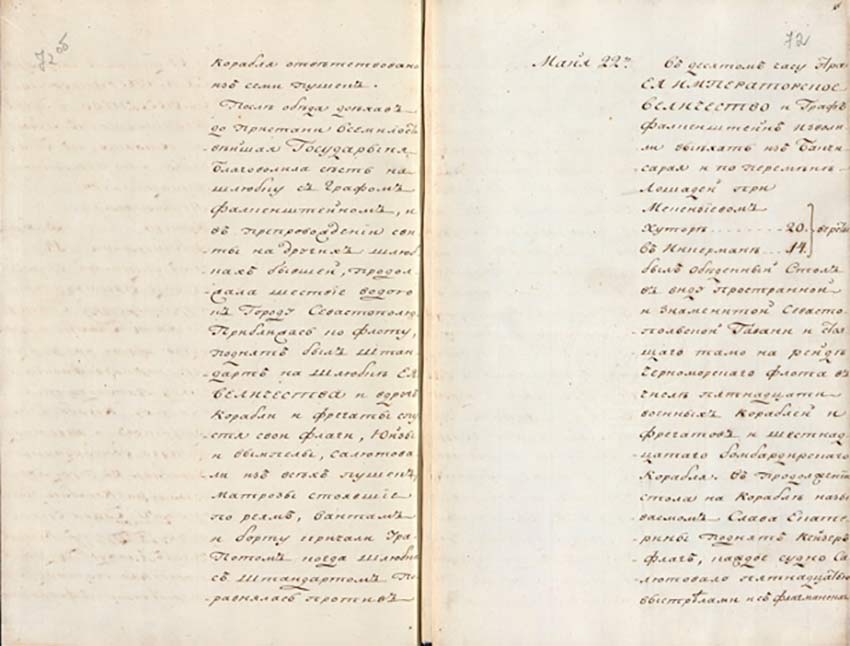 72 об
корабля отвѣтствовано
изъ семи пушекъ.
Послѣ обѣда доѣхавъ
до пристани всемилость
вѣйшая Государыня
благоволила сѣсть на
шлюбку съ Графомъ
Фалкенштейномъ, и
въ препровожденіи сви
ты на другихъ шлюб
кахъ бывшей, продол
жала шествіе водою
къ Городу Севастополю
Приближаясь ко флоту,
поднятъ былъ штан
дартъ на шлюбкѣ ЕЯ
ВЕЛИЧЕСТВА и вдругъ
Корабли и фрегаты спу
стя свои флаги, Юйзы
и вымпелы, салютова
ли изъ всѣхъ пушекъ,
матрозы стоявшіе
по реямъ, вантамъ
и борту кричали Ура
Потомъ когда шлюбка
съ штандартомъ по
равнялась противъ
72
Маія 22го
Въ десятомъ часу
ЕЯ ИМПЕРАТОРСКОЕ
ВЕЛИЧЕСТВО и Графъ
Фалкенштейнъ изволи
ли выѣхать изъ Бахчи
сарая и по перемѣнѣ
Лошадей при
Хуторѣ 20. верстъ
въ Инкерманѣ 14.
былъ обѣденный Столъ
въ виду Пространной
и Знаменитой Севасто
польской Гавани и стоя
щаго тамо на рейдѣ
Черноморскаго флота въ
числѣ пятнадцати
военныхъ Кораблей и
фрегатовъ и шестнад
цатаго бомбардирскаго
Корабля. Въ продолженіи
стола на Кораблѣ назы
ваемомъ Слава Екате
рины поднятъ Кейзеръ
флагъ, каждое судно Са
лютовало пятнадцатью
выстрѣлами и съ флагманскаго